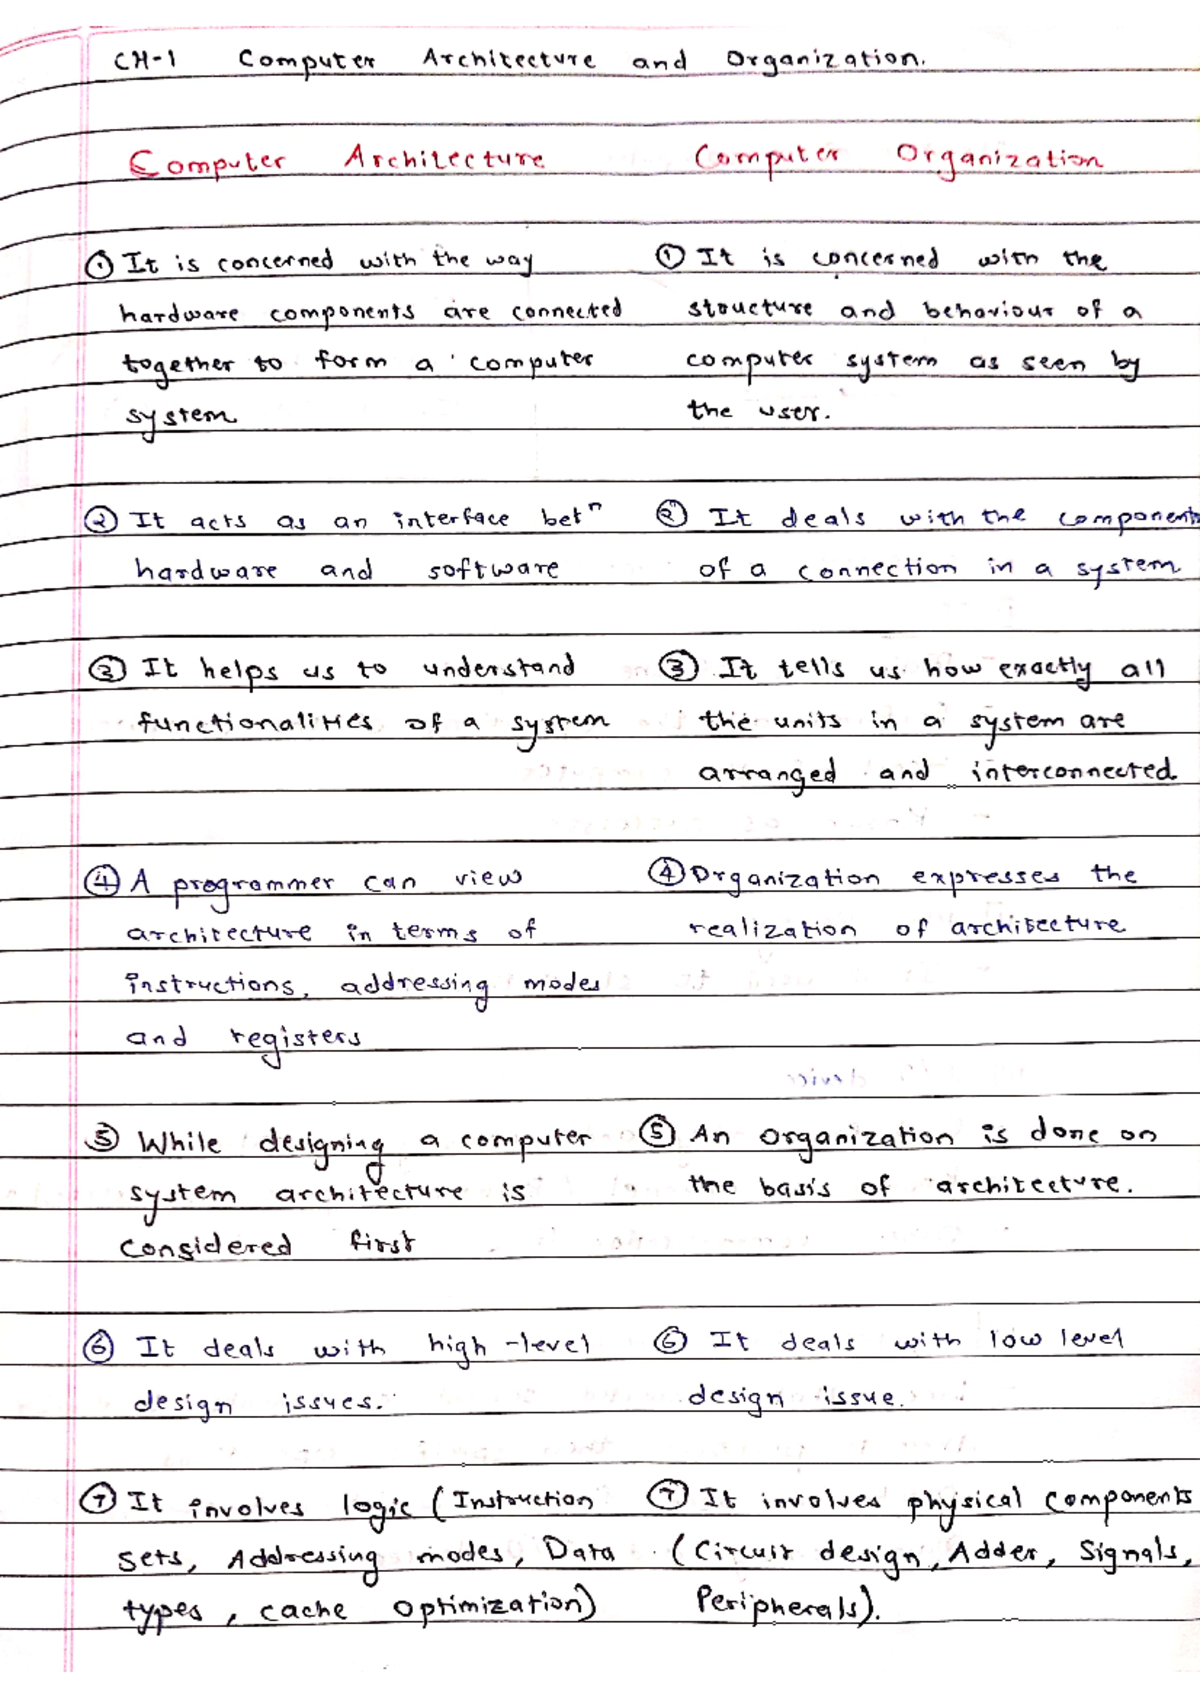 CH-1 Computer Architecture and Organization.
Computer Architecture
① It is concerned with the way
hardware components are connected
together to form a computer
system
② It acts as an interface betⁿ
hardware and software
③ It helps us to understand
functionalities of a system
④ A programmer can view
architecture in terms of
instructions, addressing modes
and registers
⑤ While designing a computer
system architecture is
considered first
⑥ It deals with high-level
design issues.
⑦ It involves logic (Instruction
sets, Addressing modes, Data
types, cache optimization)
Computer Organization
① It is concerned with the
structure and behaviour of a
computer system as seen by
the user.
② It deals with the components
of a connection in a system
③ It tells us how exactly all
the units in a system are
arranged and interconnected
④ Organization expresses the
realization of architecture
⑤ An organization is done on
the basis of architecture.
⑥ It deals with low level
design issue.
⑦ It involves physical components
(Circuit design, Adder, Signals,
Peripherals).